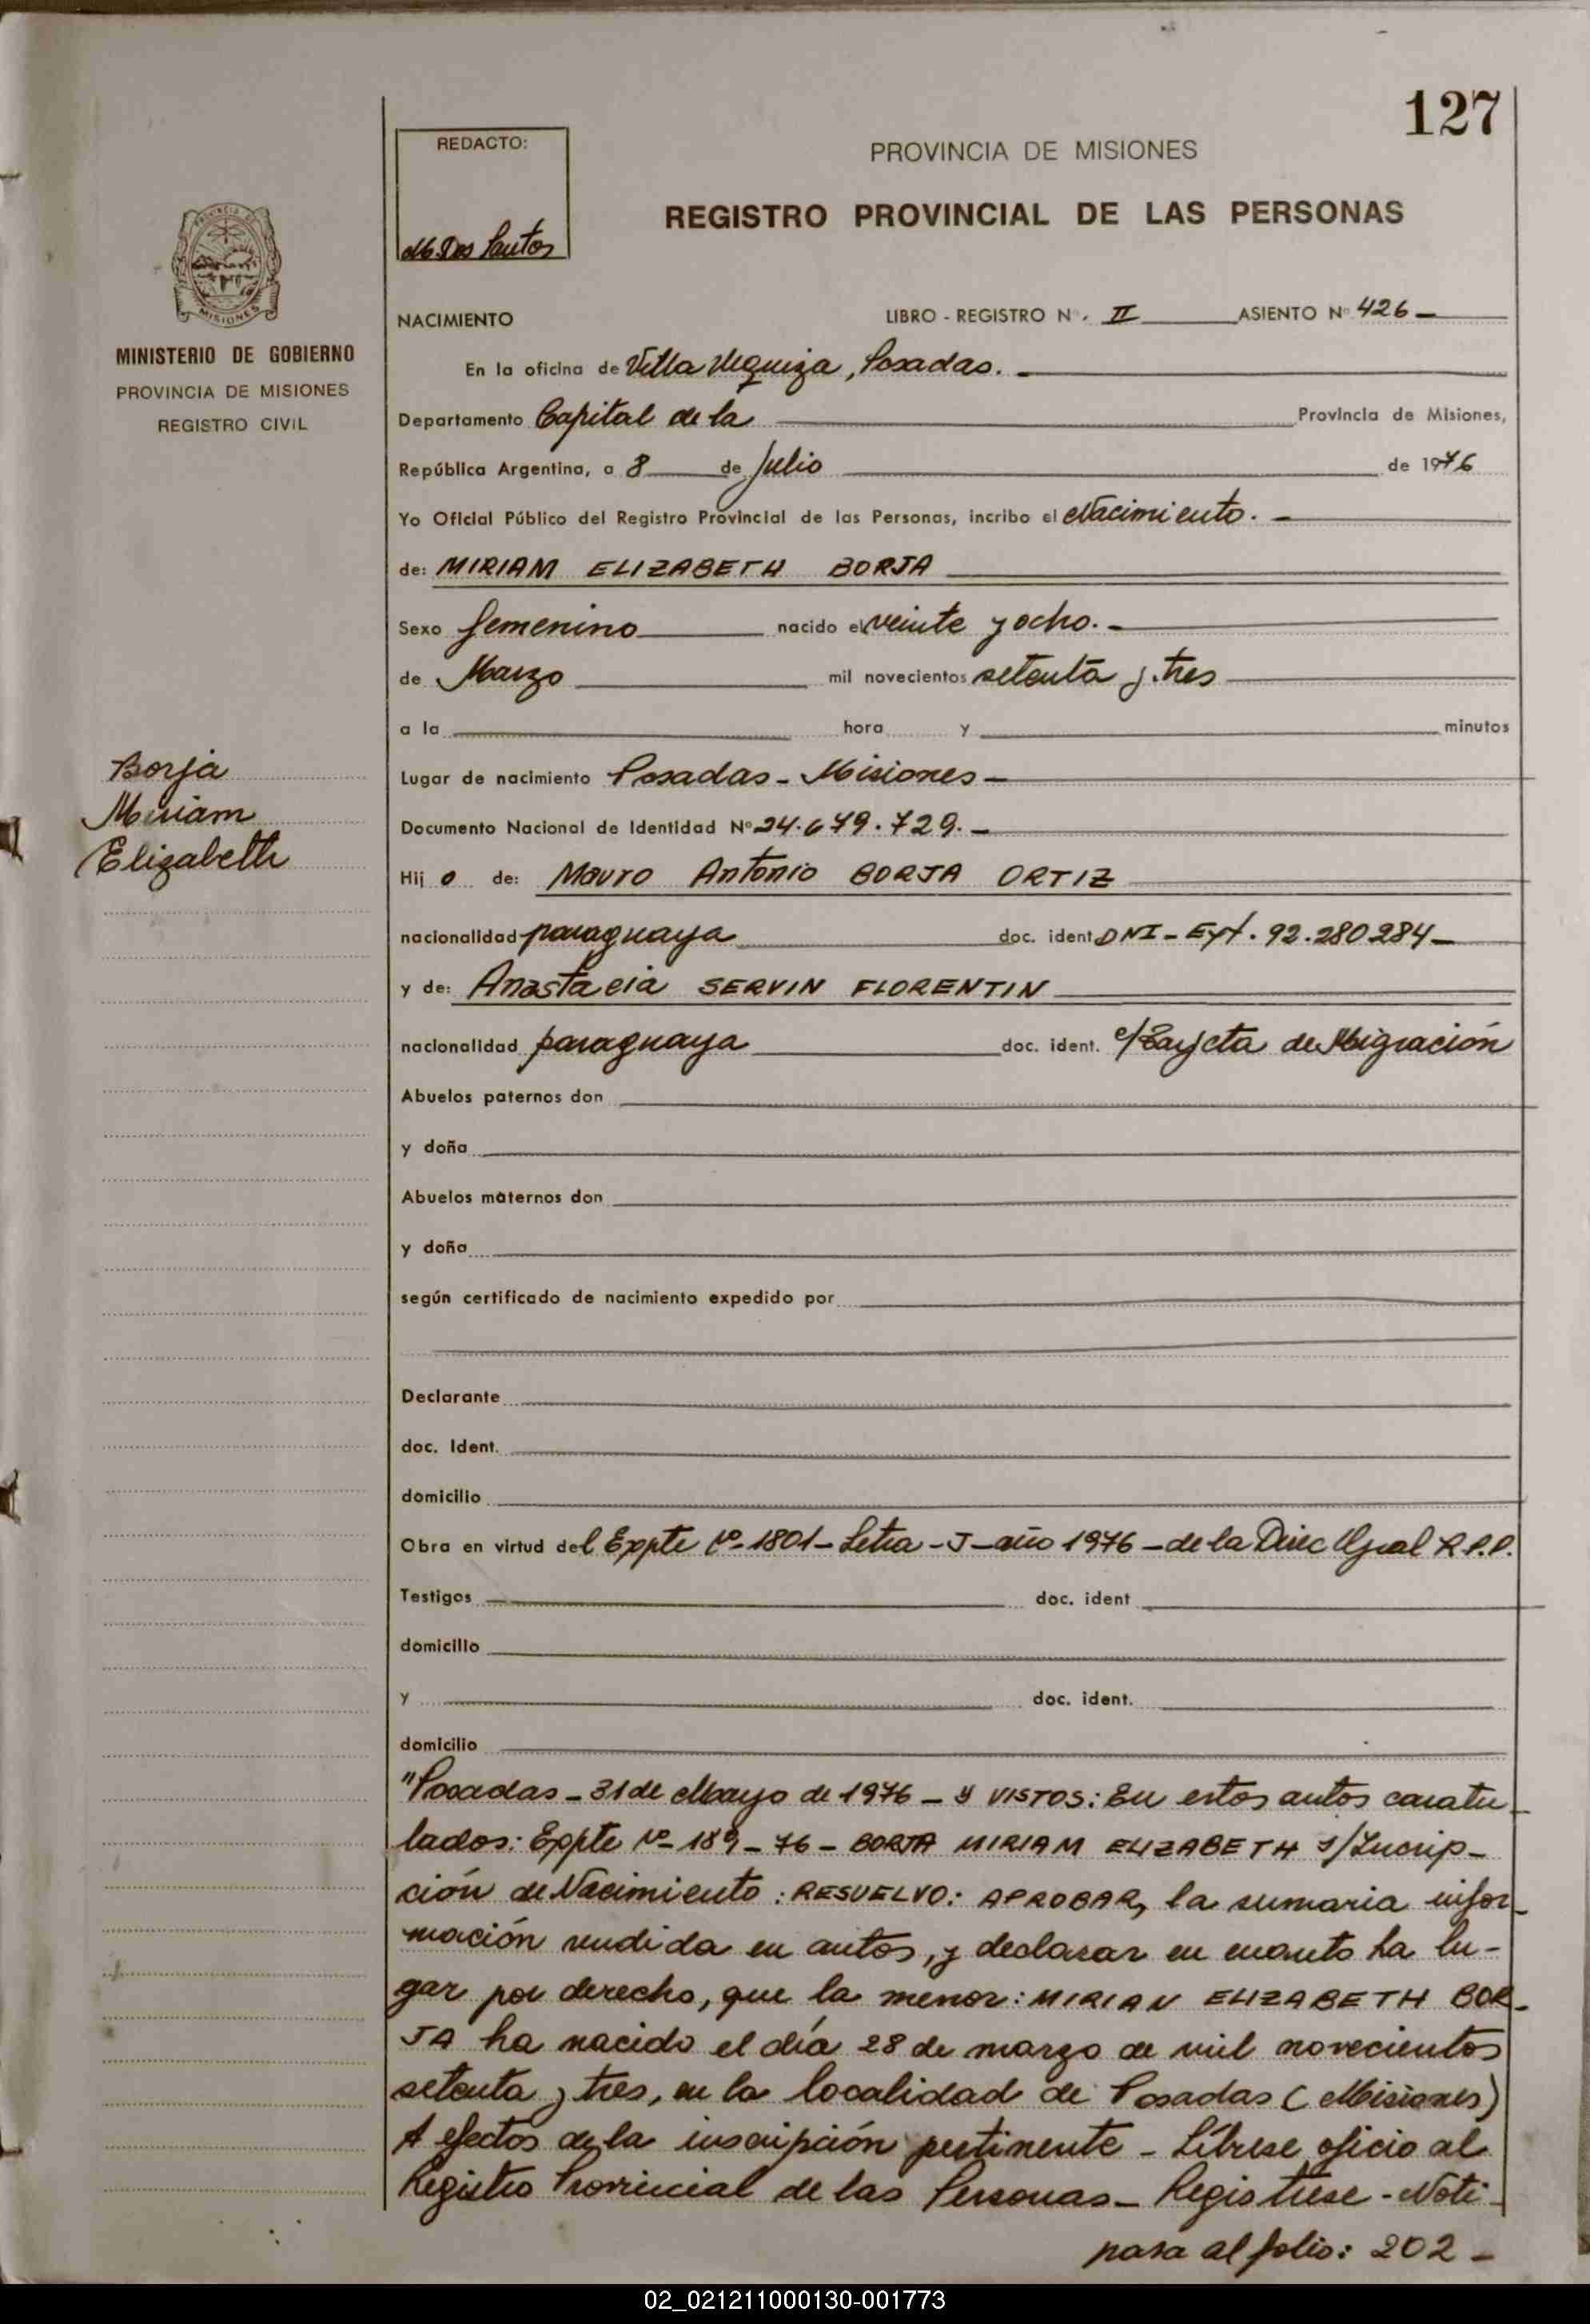 127
REDACTO:
M. Dos Santos
PROVINCIA DE MISIONES
REGISTRO PROVINCIAL DE LAS PERSONAS
PROVINCIA DE
MISIONES
MINISTERIO DE GOBIERNO
PROVINCIA DE MISIONES
REGISTRO CIVIL
NACIMIENTO LIBRO - REGISTRO Nº. II ASIENTO Nº 426 -
En la oficina de Villa Urquiza, Posadas. -
Departamento Capital de la Provincia de Misiones,
República Argentina, a 8 de Julio de 1976
Yo Oficial Público del Registro Provincial de las Personas, incribo el Nacimiento. -
de: MIRIAM ELIZABETH BORJA
Sexo femenino nacido el veinte y ocho. -
de Marzo mil novecientos setenta y tres
a la hora y minutos
Borja
Miriam
Elizabeth
Lugar de nacimiento Posadas - Misiones -
Documento Nacional de Identidad Nº 24.679.729. -
Hij a de: Mauro Antonio BORJA ORTIZ
nacionalidad paraguaya doc. ident DNI - Ext. 92.280.284 -
y de: Anastacia SERVIN FLORENTIN
nacionalidad paraguaya doc. ident. c/Tarjeta de Migración
Abuelos paternos don
y doña
Abuelos maternos don
y doña
según certificado de nacimiento expedido por
Declarante
doc. Ident.
domicilio
Obra en virtud del Expte Nº 1801 - Letra - J - año 1976 - de la Direc Gral R.P.P.
Testigos doc. ident
domicilio
y doc. ident.
domicilio
"Posadas - 31 de Mayo de 1976 - Y VISTOS: En estos autos caratu
lados: Expte Nº 189 - 76 - BORJA MIRIAM ELIZABETH s/Inscrip-
ción de Nacimiento: RESUELVO: APROBAR, la sumaria infor-
mación rendida en autos, y declarar en cuanto ha lu-
gar por derecho, que la menor: MIRIAN ELIZABETH BOR-
JA ha nacido el día 28 de marzo de mil novecientos
setenta y tres, en la localidad de Posadas (Misiones)
A efectos de la inscripción pertinente - Líbrese oficio al
Registro Provincial de las Personas - Registrese - Noti -
pasa al folio: 202 -
02_021211000130-001773